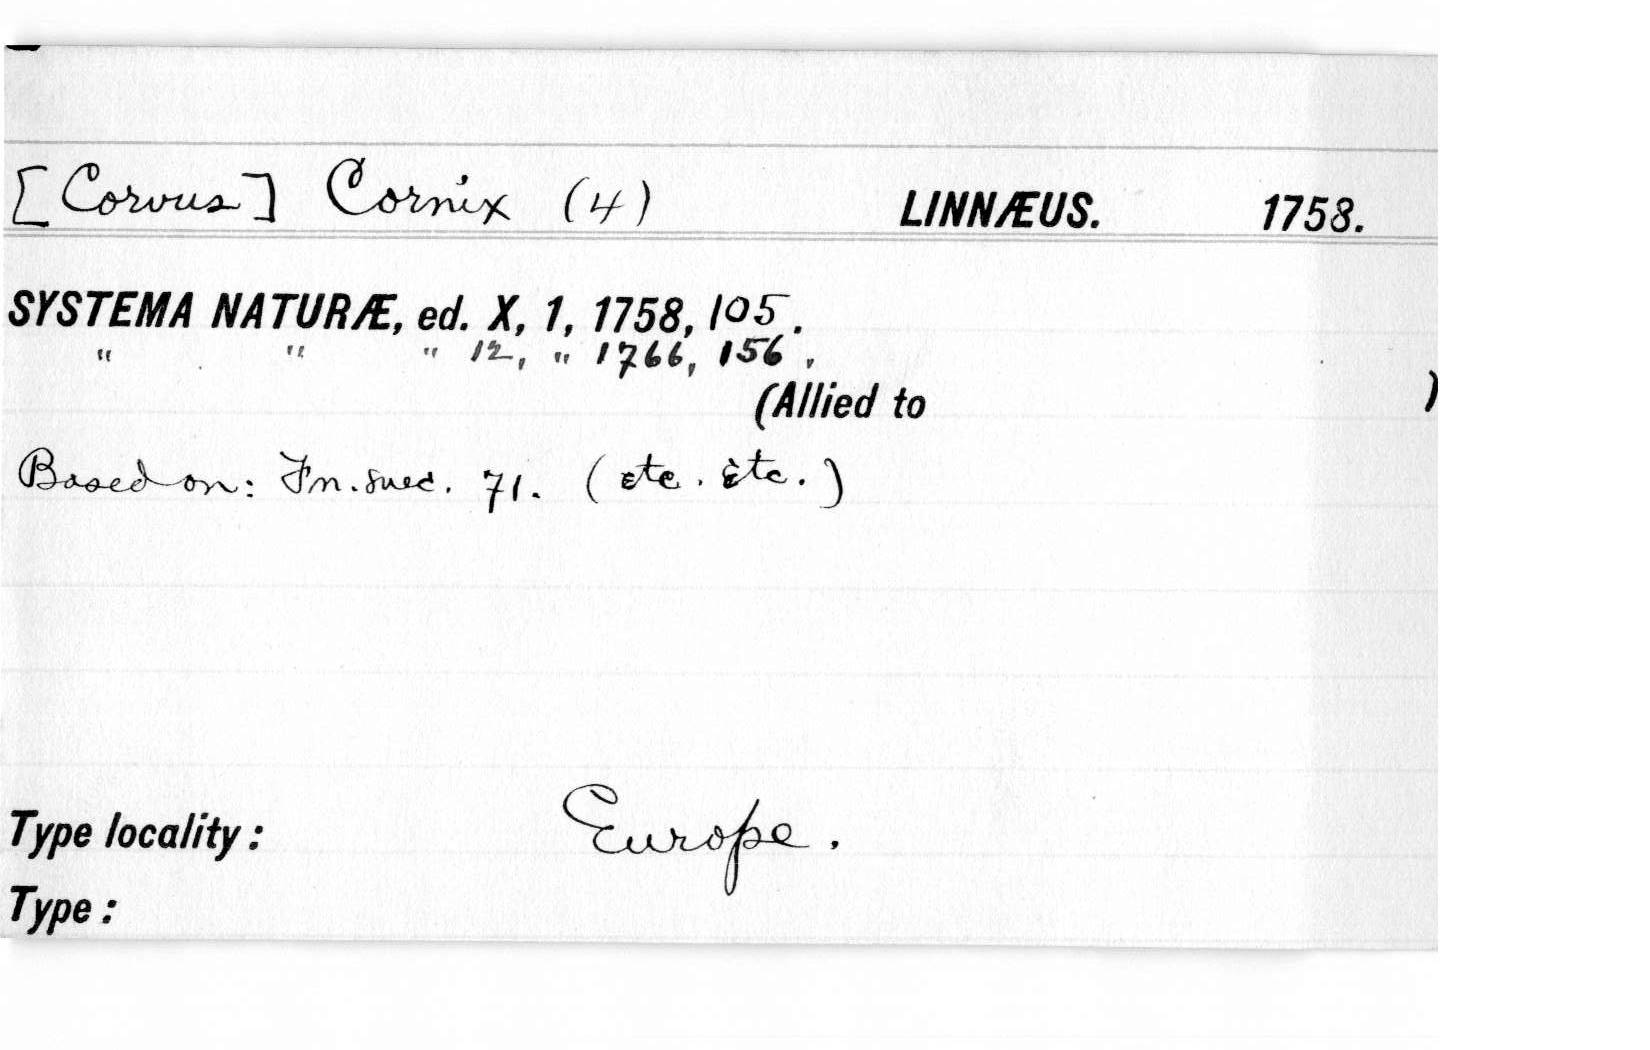 [Corvus] Cornix (4) LINNÆUS. 1758.
SYSTEMA NATURÆ, ed. X, 1, 1758, 105.
" " " 12, " 1766, 156,
(Allied to )
Based on: Fn. suec. 71. (etc. etc.)
Type locality: Europe.
Type: